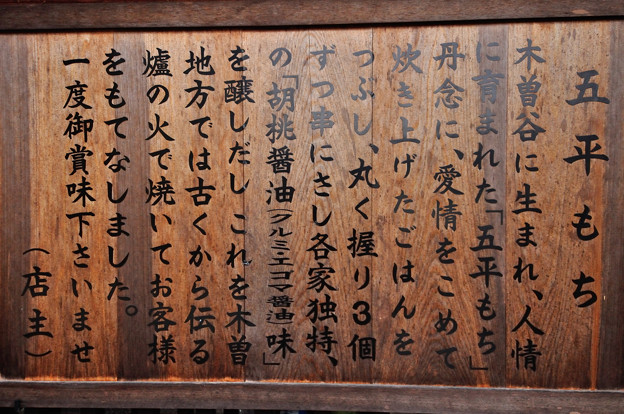 五平もち
木曽谷に生まれ、人情
に育まれた「五平もち」
丹念に、愛情をこめて
炊き上げたごはんを
つぶし、丸く握り3個
ずつ串にさし各家独特、
の「胡桃醤油(クルミエゴマ醤油)味」
を醸しだしこれを木曽
地方では古くから伝る
爐の火で焼いてお客様
をもてなしました。
一度御賞味下さいませ
(店主)